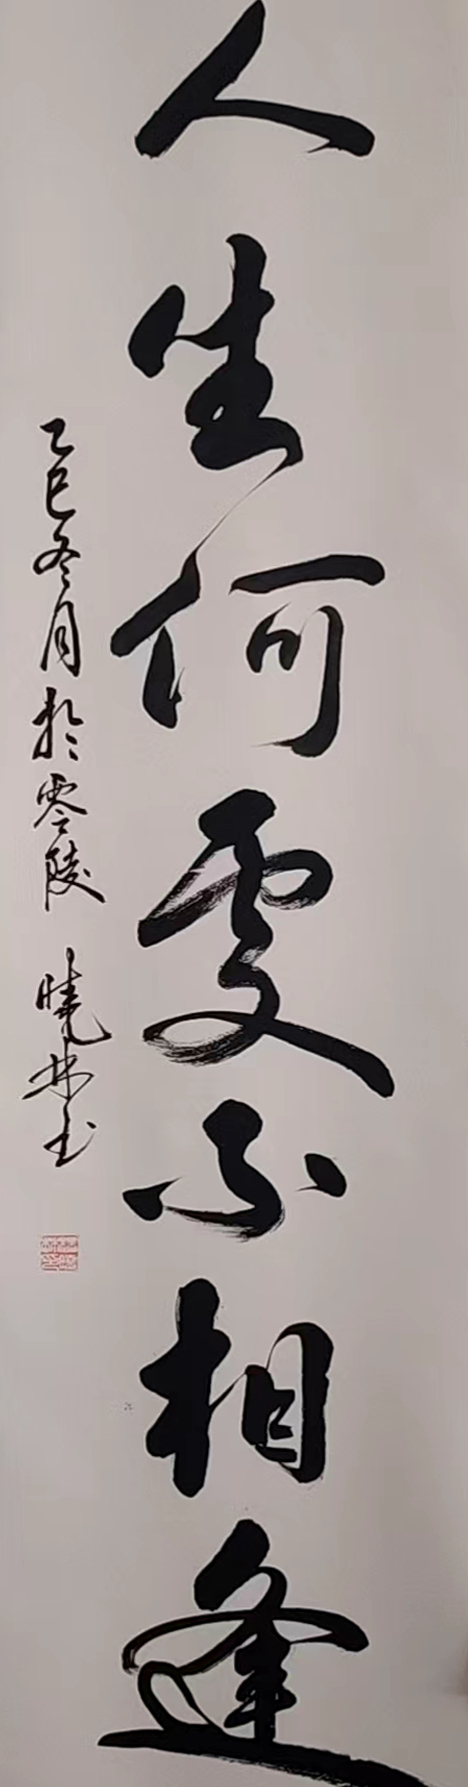 人生何处不相逢
乙巳冬月於零陵 晓林书